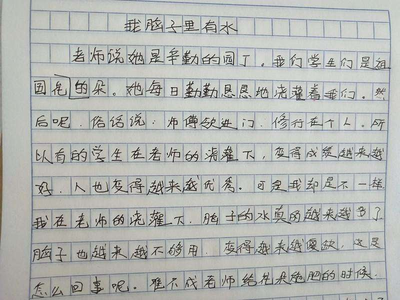 我脑子里有水
老师说她是辛勤的园丁，我们学生们是祖
国花的朵。她每日勤勤恳恳地浇灌着我们。然
后呢，俗话说：师傅领进门，修行在个人。所
以有的学生在老师的浇灌下，变得成绩越来越
好，人也变得越来越优秀。可是我却是不一样
我在老师的浇灌下，脑子的水真的越来越多了
脑子也越来越不够用，变得越来越，这是
怎么回事呢。难不成老师给花朵施肥的时候